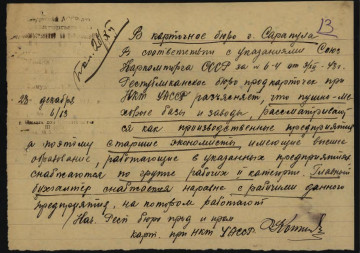 13
В карточное бюро г. Сарапула
В соответствии с указаниями Союз
Наркомторга СССР за № 6-4 от
Республиканское бюро продкарточек при
23 декабря
НКТ УАССР разъясняет, что пушно-ме-
ховые базы и заводы, рассматривают
ся как производственные предприятия
а поэтому старшие экономисты, имеющие высшее
образование, работающие в указанных предприятиях
снабжаются по группе рабочих и категории. Главный
бухгалтер снабжается наравне с рабочими данного
предприятия, на котором работают
Нач. Респ бюро прод и пром
карт. при НКТ УАССР